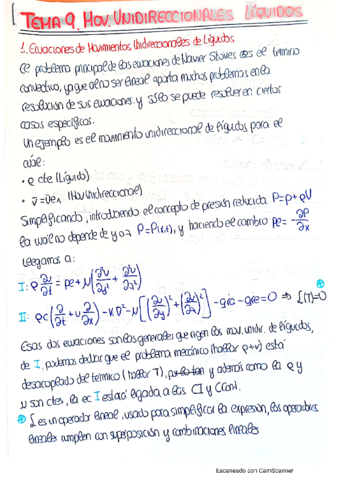 TEMA 9. MOV. UNIDIRECCIONALES LÍQUIDOS
1. Ecuaciones de Movimientos Unidireccionales de Líquidos
El problema principal de las ecuaciones de Navier Stokes es el término
convectivo, ya que al no ser lineal aporta muchos problemas en la
resolución de sus ecuaciones y sólo se puede resolver en ciertos
casos específicos.
Un ejemplo es el movimiento unidireccional de líquidos para el
cual:
• ρ cte (Líquido)
• v̄ = u ex (Mov Unidireccional)
Simplificando, introduciendo el concepto de presión reducida P=p+ρU
la cual no depende de y o z P=P(x,t), y haciendo el cambio pe = -∂P/∂x
llegamos a:
I: ρ ∂u/∂t = pe + μ(∂²u/∂y² + ∂²u/∂z²)
II: ρc(∂/∂t + u ∂/∂x) - K∇² - μ[(∂u/∂y)² + (∂u/∂z)²] - = 0 ⇒ L(T)=0
Esas dos ecuaciones son las generales que rigen los mov. unidir. de líquidos,
de I, podemos deducir que el problema mecánico (hallar p y v) está
desacoplado del térmico (hallar T), y además como la ρ y
μ son ctes, la ec I estará ligada a las CI y CCont.
L es un operador lineal, usado para simplificar la expresión, los operadores
lineales cumplen con superposición y combinaciones lineales
Escaneado con CamScanner